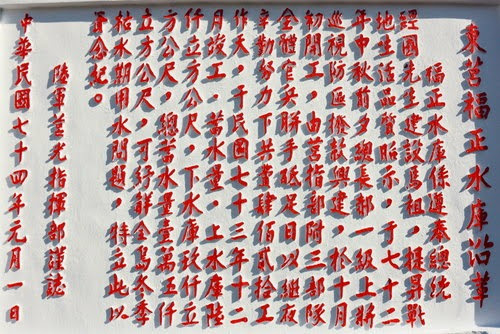 東莒福正水庫沿革
福正水庫係遵奉總統
經國先生建設馬祖,提昇戰
地生活品質昭示,于七十二
年中秋前夕總長郝一級上將
巡視防區撥款興建,於十月
初開工,由莒指部附三部隊
全體官兵胼手胝足日以繼夜
辛勤努力下共費肆佰貳拾工
作天,于民國七十三年十二
月竣工,蓄水量,上水庫陸
仟立方公尺,下水庫玖仟立
方公尺,總蓄水量壹萬伍仟
立方公尺,可紓解全島冬季
枯水期用水問題,特立此以
于念記。
陸軍莒光指揮部謹誌
中華民國七十四年元月一日